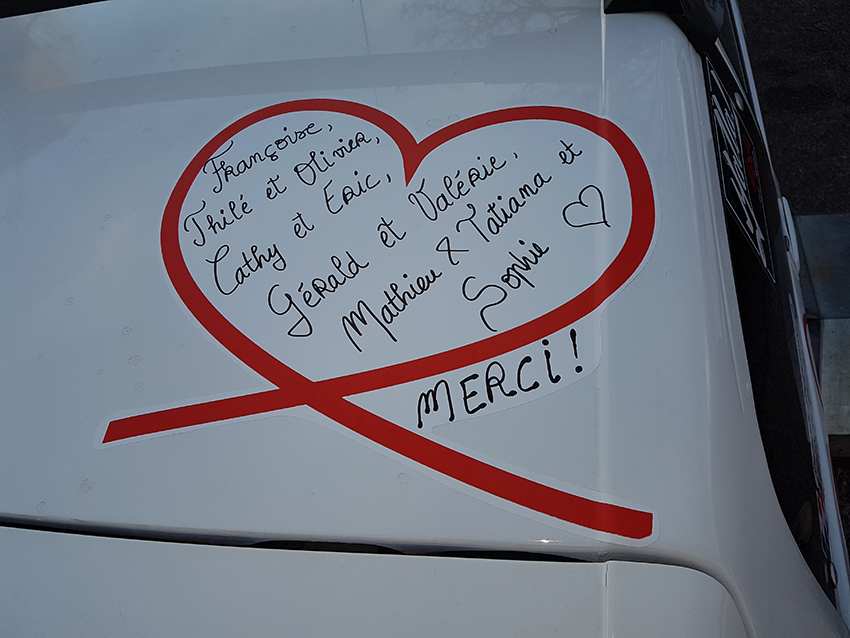 Françoise,
Thilé et Olivier,
Cathy et Eric,
Gérald et Valérie,
Mathieu & Tatiana et
Sophie
MERCi!